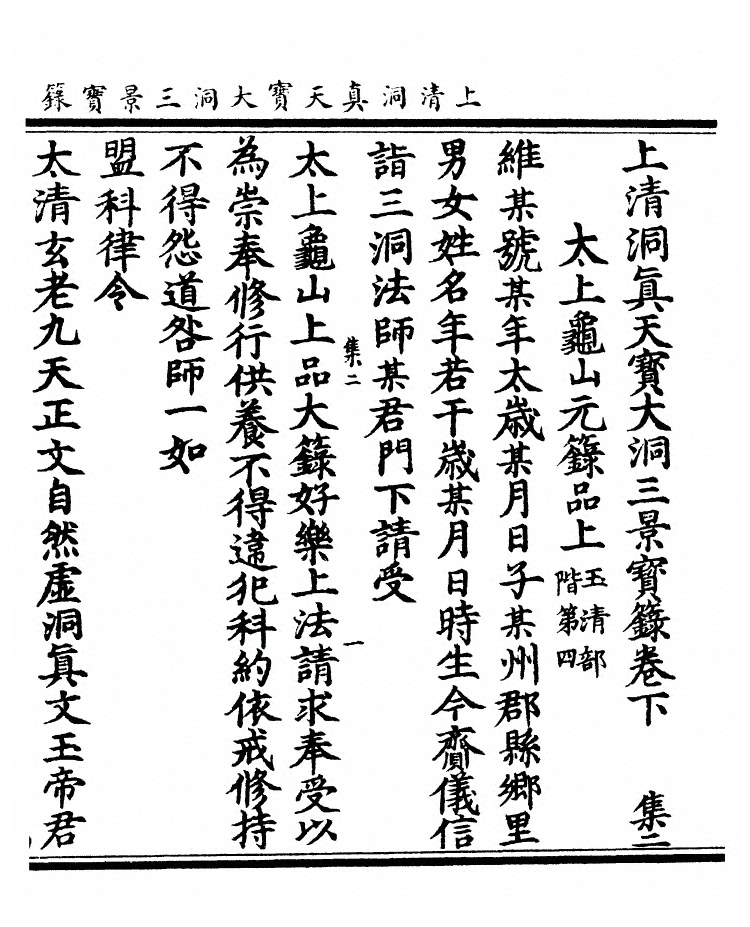 上清洞真天寶大洞三景寶籙
上清洞眞天寶大洞三景寶籙卷下 集二
太上龜山元籙品上 玉清部
階第四
維某號某年太歲某月日子某州郡縣鄉里
男女姓名年若干歲某月日時生今齎儀信
詣三洞法師某君門下請受
集二 一
太上龜山上品大籙好樂上法請求奉受以
為崇奉修行供養不得違犯科約依戒修持
不得怨道咎師一如
盟科律令
太清玄老九天正文自然虛洞眞文玉帝君